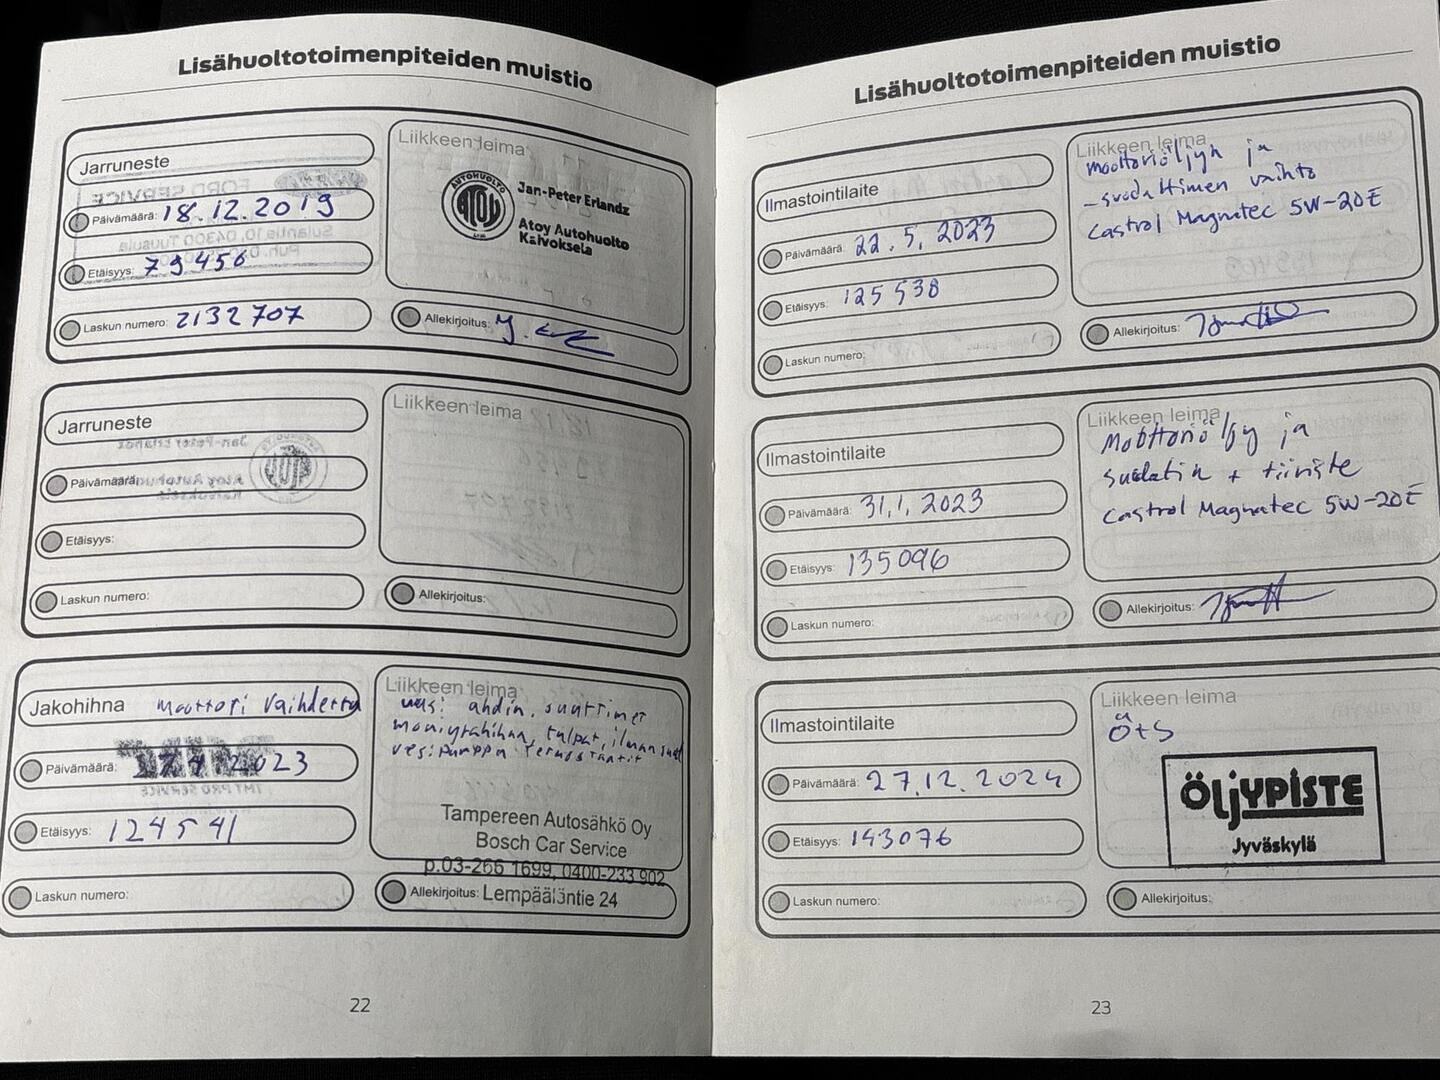 Lisähuoltotoimenpiteiden muistio
Jarruneste
Päivämäärä: 18.12.2019
Etäisyys: 79456
Laskun numero: 2132707
Liikkeen leima
AUTOHUOLTO
ATOY
Jan-Peter Erlandz
Atoy Autohuolto
Kaivoksela
Allekirjoitus:
Jarruneste
Päivämäärä:
Etäisyys:
Laskun numero:
Liikkeen leima
Allekirjoitus:
Jakohihna moottori vaihdettu
Päivämäärä: 2023
Etäisyys: 124541
Laskun numero:
Liikkeen leima
uusi ahdin, suuttimet
moniurahihna, tulpat, ilman suod
vesipumppu termostantit
Tampereen Autosähkö Oy
Bosch Car Service
p.03-266 1699, 0400-233 902
Allekirjoitus: Lempääläntie 24
22
Lisähuoltotoimenpiteiden muistio
Ilmastointilaite
Päivämäärä: 22.5.2023
Etäisyys: 125538
Laskun numero:
Liikkeen leima
moottoriöljyn ja
-suodattimen vaihto
Castrol Magnatec 5W-20E
Allekirjoitus:
Ilmastointilaite
Päivämäärä: 31.1.2023
Etäisyys: 135096
Laskun numero:
Liikkeen leima
Moottoriöljy ja
suodatin + tiiviste
Castrol Magnatec 5W-20E
Allekirjoitus:
Ilmastointilaite
Päivämäärä: 27.12.2024
Etäisyys: 143076
Laskun numero:
Liikkeen leima
Ö+S
ÖLJYPISTE
Jyväskylä
Allekirjoitus:
23